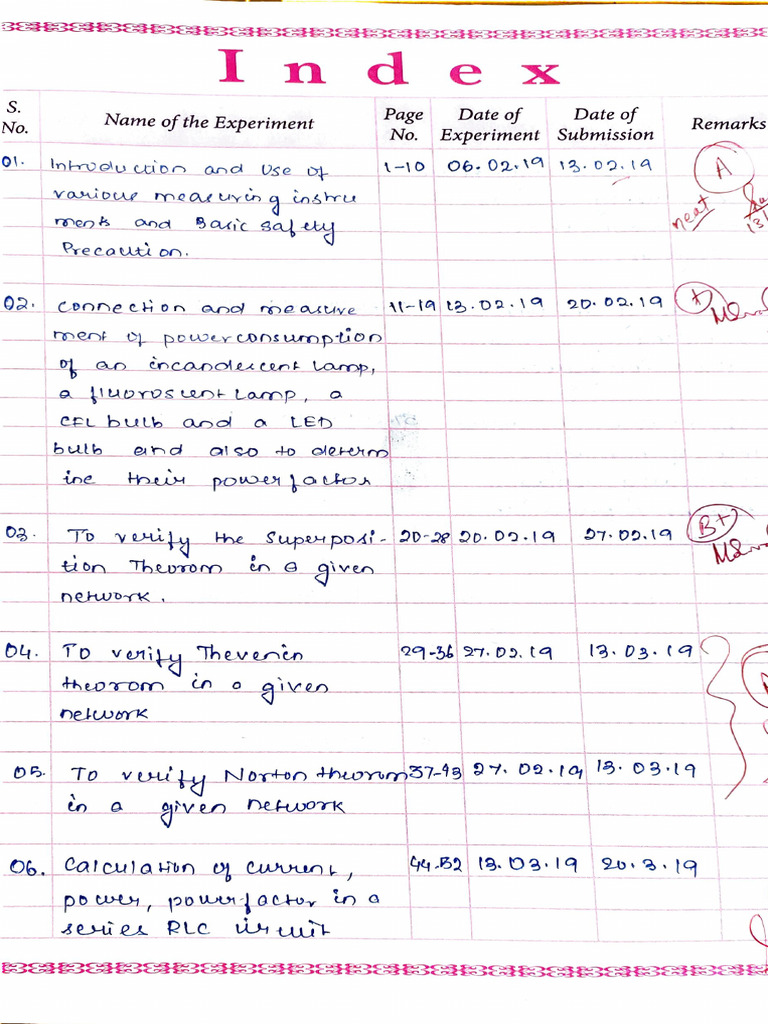 Index
S. No. Name of the Experiment Page No. Date of Experiment Date of Submission Remarks
01. Introduction and Use of 1-10 06.02.19 13.02.19 A
various measuring instru neat
ments and Basic Safety
Precaution.
02. Connection and measure 11-19 13.02.19 20.02.19
ment of power consumption
of an incandescent lamp,
a fluoroscent lamp, a
CFL bulb and a LED
bulb and also to determ
ine their power factor
03. To verify the Superposi- 20-28 20.02.19 27.02.19 B+
tion Theorom in a given
network.
04. To verify Thevenin 29-36 27.02.19 13.03.19
theorom in a given
network
05. To verify Norton theorom 37-43 27.02.19 13.03.19
in a given network
06. Calculation of current, 44-52 13.03.19 20.3.19
power, power factor in a
series RLC circuit